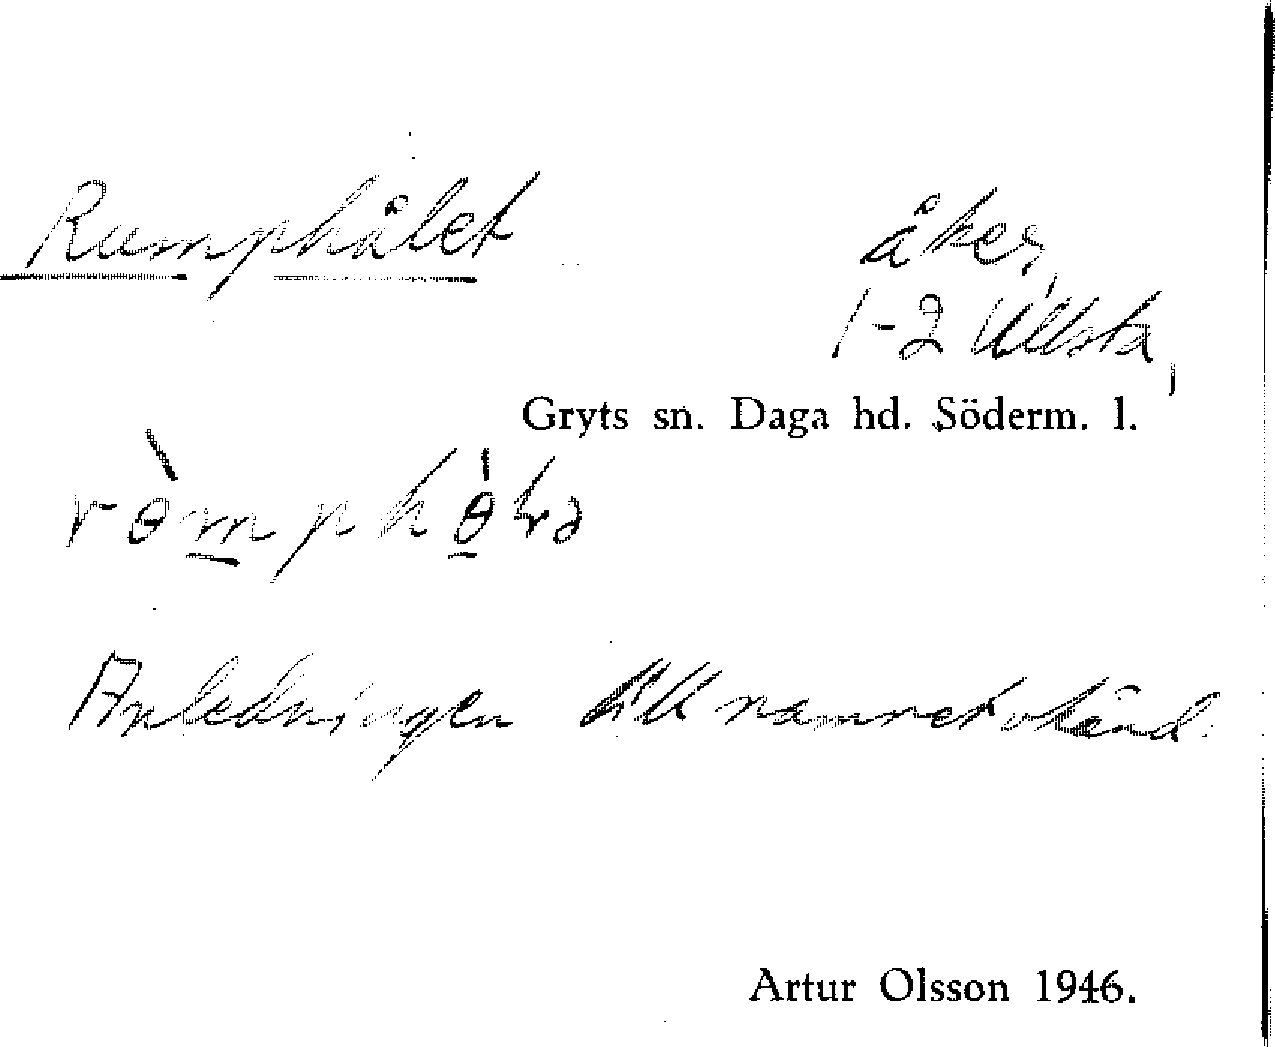 Rumphålet åker,
1-2 Ullsta,
Gryts sn. Daga hd. Söderm. l.
Anledningen till namnet okänd.
Artur Olsson 1946.